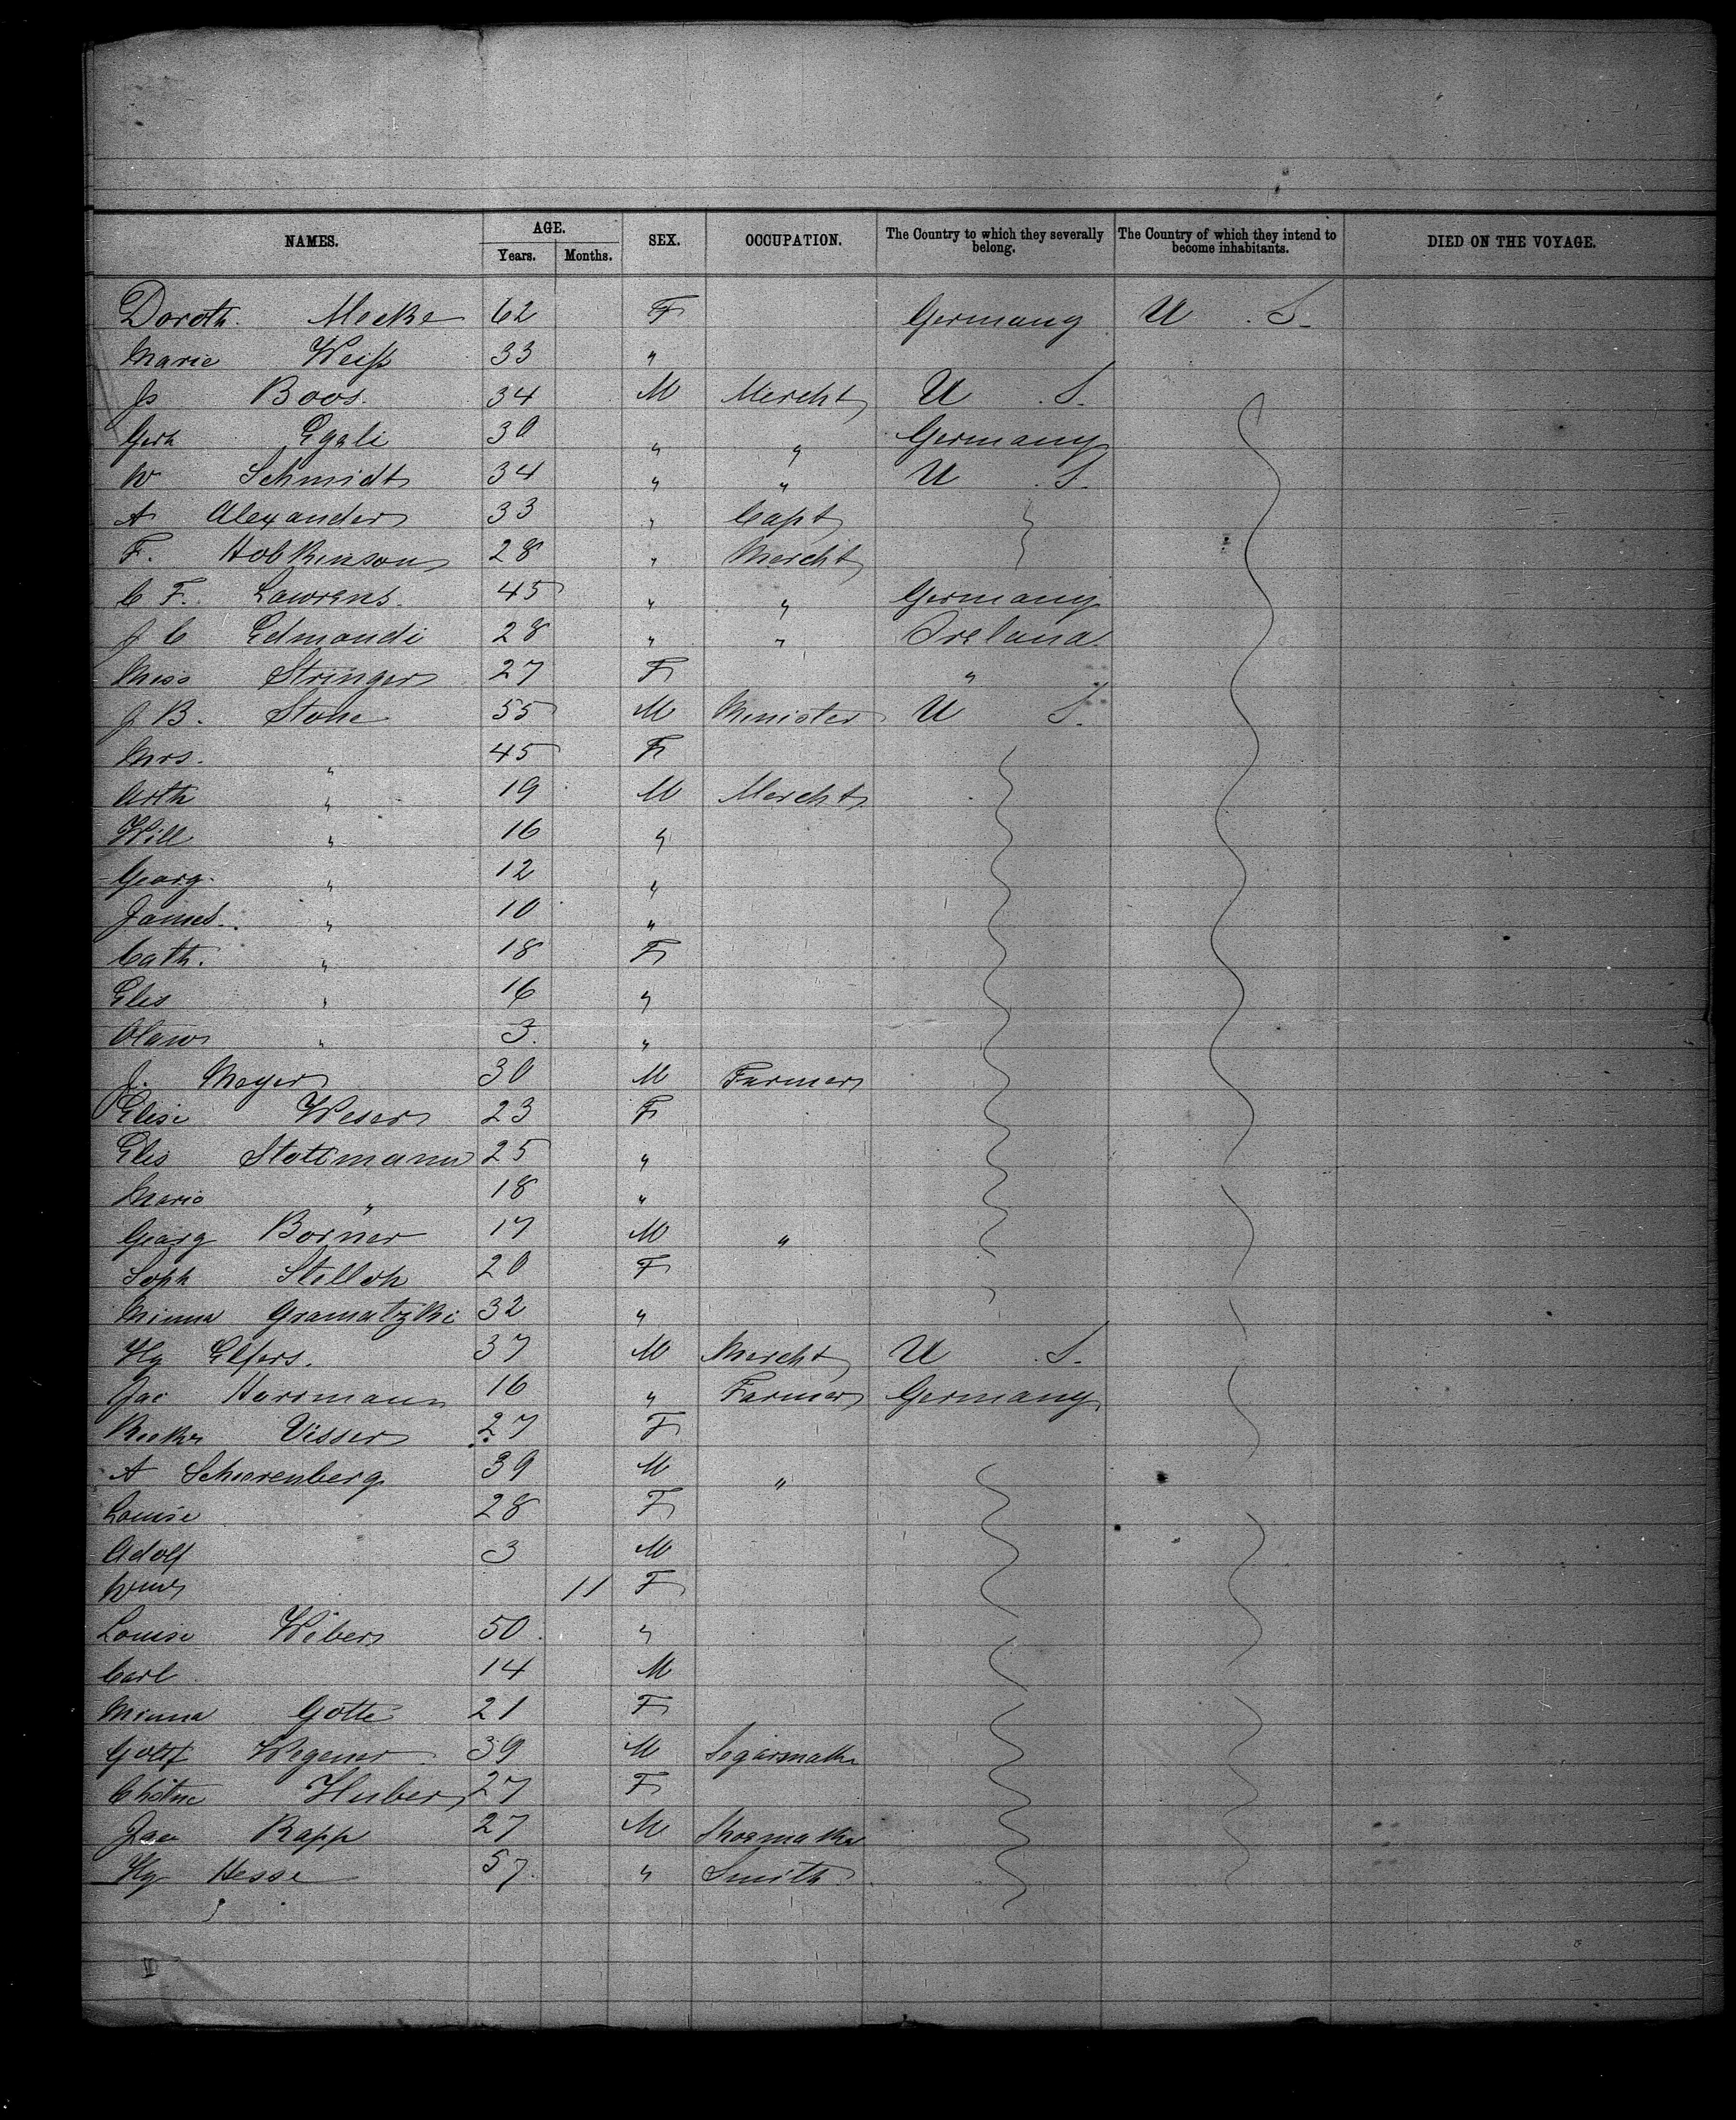 NAMES. AGE. SEX. OCCUPATION. The Country to which they severally belong. The Country of which they intend to become inhabitants. DIED ON THE VOYAGE.
Years. Months.
Doroth. Mecke 62 F Germany U . S.
Marie Weiß 33 "
Js Boos. 34 M Mercht U . S.
Gerh Eggli 30 " " Germany
W Schmidt 34 " " U . S.
A Alexander 33 " Capt
F. Hobkinson 28 " Mercht
C F. Lawrens. 45 " " Germany
J C Edmondi 28 " " Ireland.
Miss Stringer 27 F "
J B. Stone 55 M Minister U S.
Mrs. " 45 F
Arth " 19 M Mercht
Will " 16 "
Georg. " 12 "
James. " 10 "
Cath. " 18 F
Elis " 16 "
" 3. "
J. Meyer 30 M Farmer
Elise Weser 23 F
Elis 25 "
Marie " 18 "
Georg Borner 17 M "
Soph Stelloh 20 F
Minna Gramatzki 32 "
Hy Elfers. 37 M Mercht U . S.
Jac Harrmann 16 " Farmer Germany
Visser 27 F
A Scheerenberg 39 M "
Louise 28 F
Adolf 3 M
11 F
Louise Wiber 50. "
Carl 14 M
Minna Gotte 21 F
Gottf Wegener 39 M Segarmaker
Chstne Huber 27 F
Jac Rapp 27 M Shoemaker
Hy Hesse 57. " Smith